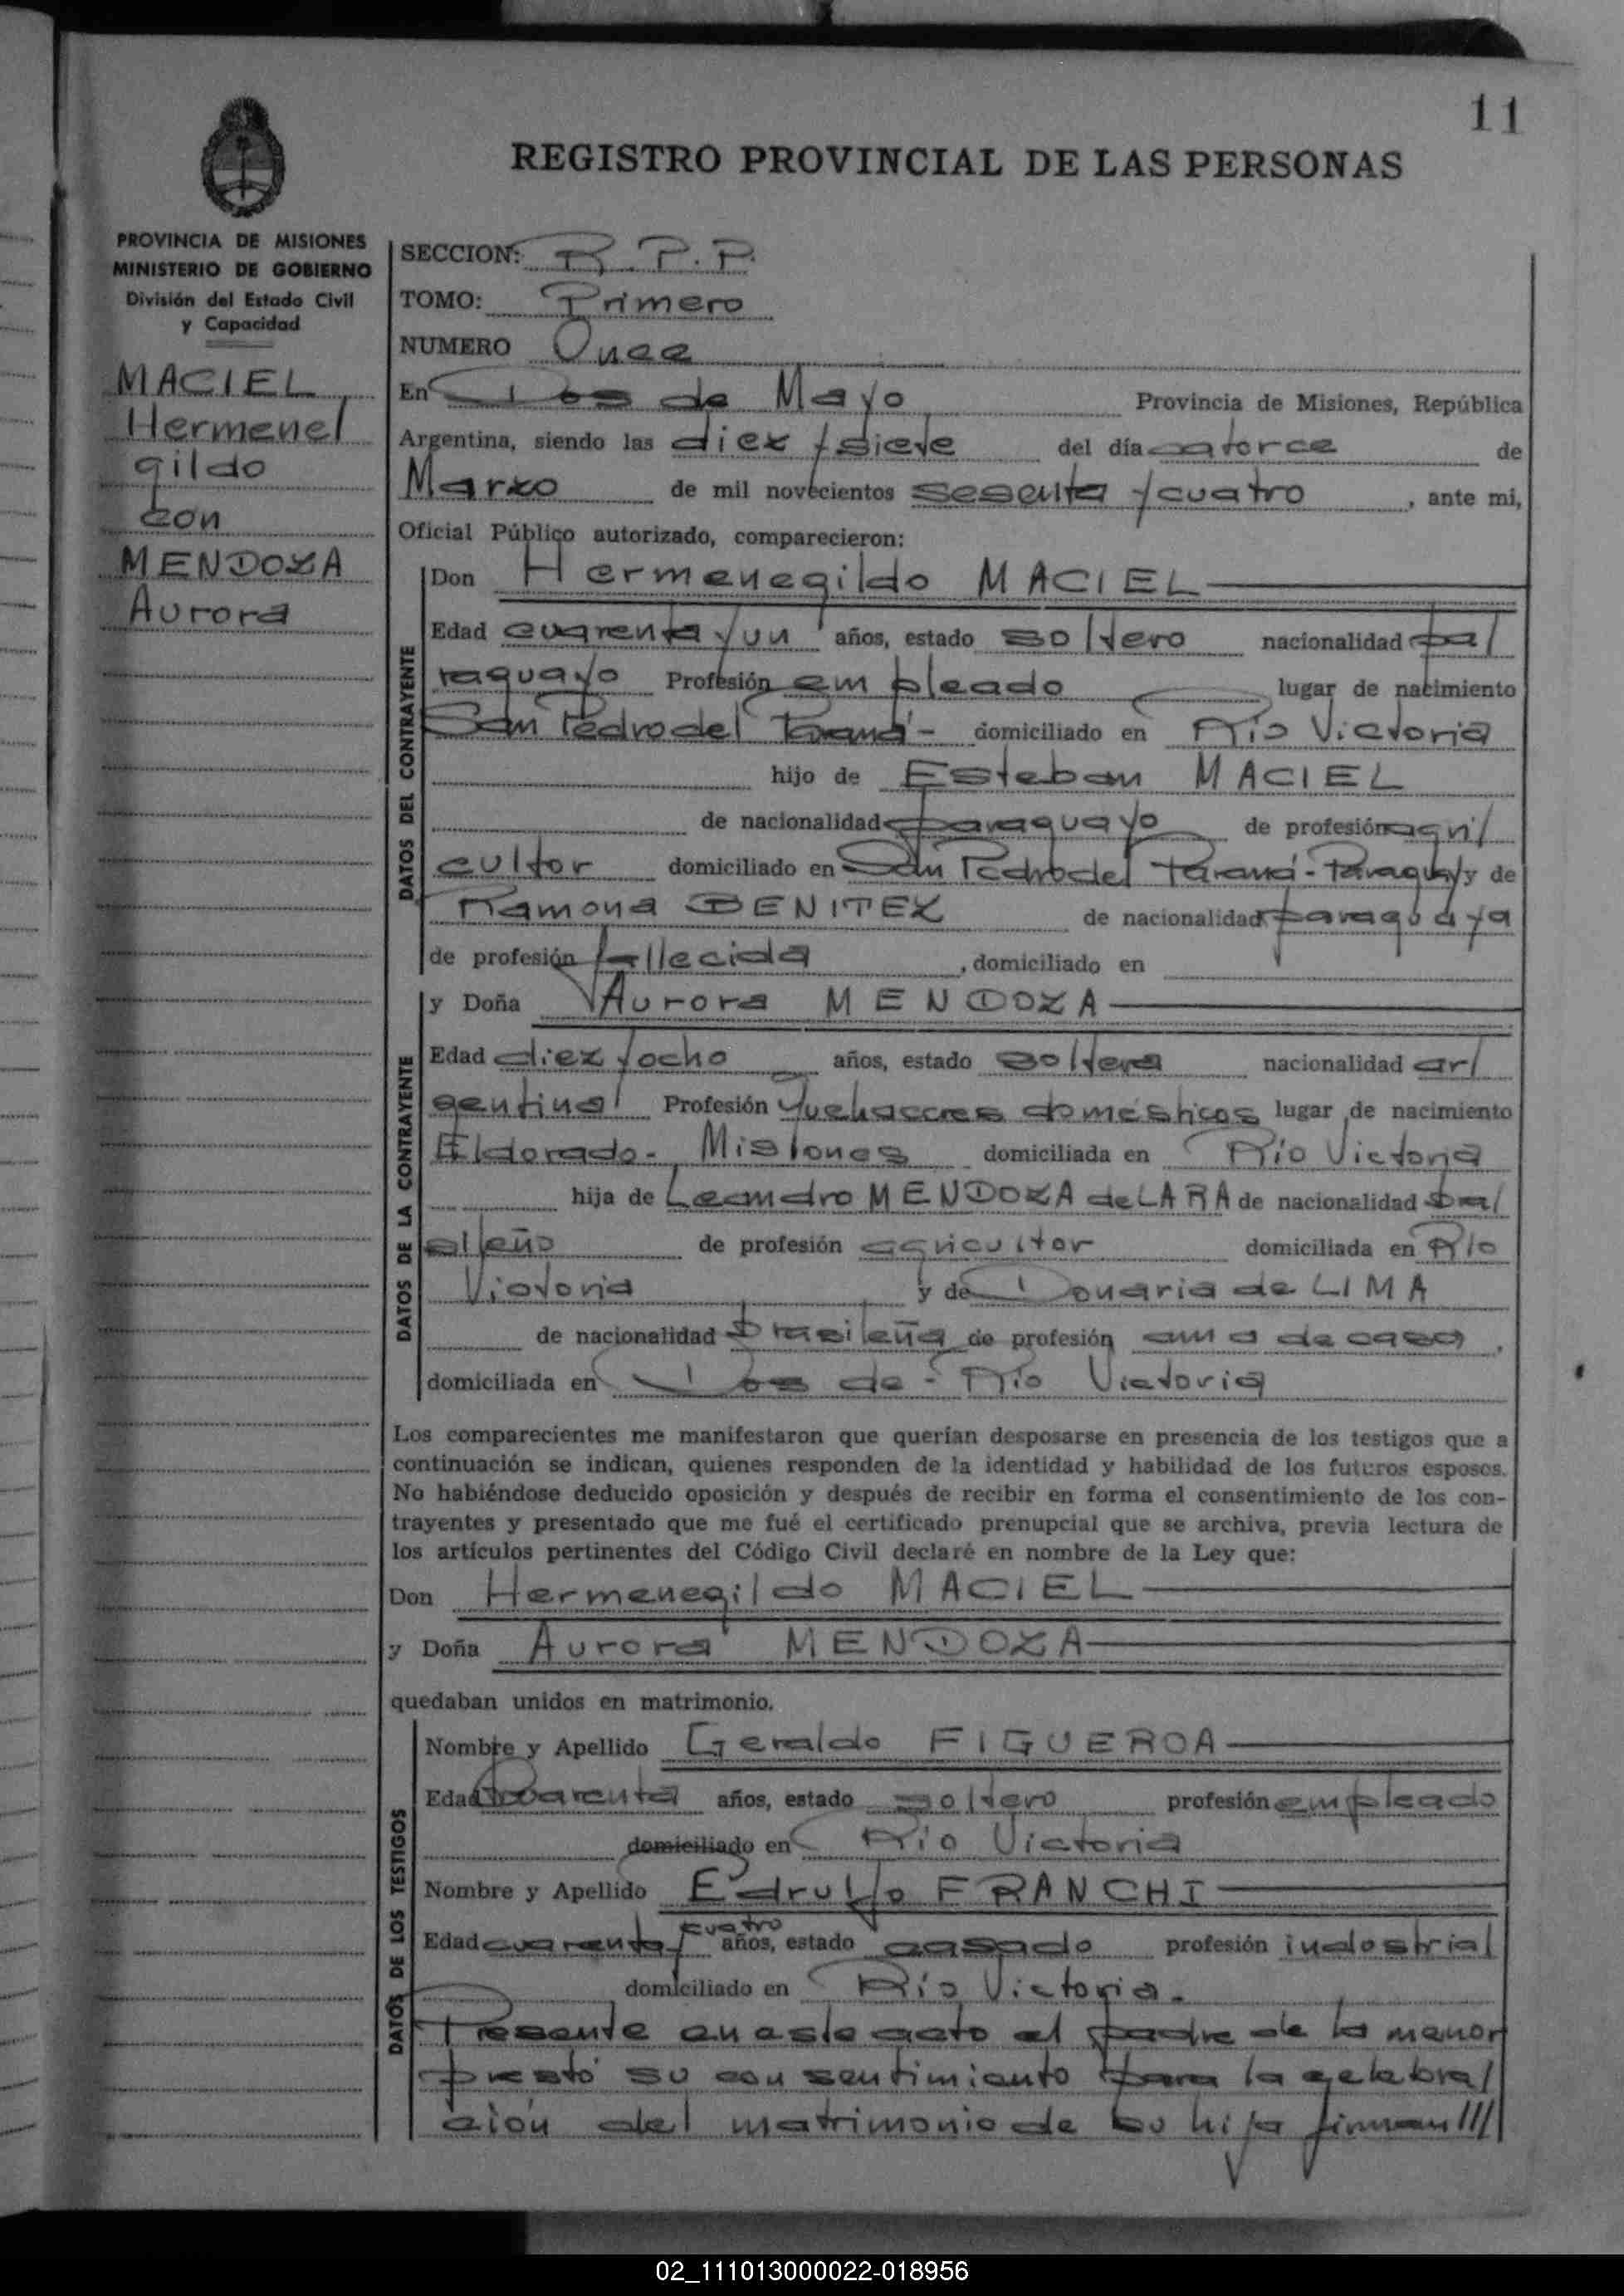 11
REGISTRO PROVINCIAL DE LAS PERSONAS
PROVINCIA DE MISIONES
MINISTERIO DE GOBIERNO
División del Estado Civil
y Capacidad
MACIEL
Hermenel
gildo
con
MENDOZA
Aurora
SECCION: R.P.P.
TOMO: Primero
NUMERO Once
En Dos de Mayo Provincia de Misiones, República
Argentina, siendo las diez y siete del día catorce de
Marzo de mil novecientos sesenta y cuatro, ante mi,
Oficial Público autorizado, comparecieron:
DATOS DEL CONTRAYENTE
Don Hermenegildo MACIEL
Edad cuarenta y un años, estado soltero nacionalidad pa/
raguayo Profesión empleado lugar de nacimiento
San Pedro del Paraná- domiciliado en Río Victoria
hijo de Esteban MACIEL
de nacionalidad paraguayo de profesión agri/
cultor domiciliado en San Pedro del Paraná-Paraguay y de
Ramona BENITEZ de nacionalidad paraguaya
de profesión fallecida, domiciliado en
DATOS DE LA CONTRAYENTE
y Doña Aurora MENDOZA
Edad diez y ocho años, estado soltera nacionalidad ar/
gentina Profesión Quehaceres domésticos lugar de nacimiento
Eldorado- Misiones domiciliada en Río Victoria
hija de Leandro MENDOZA de LARA de nacionalidad bra/
sileño de profesión agricultor domiciliada en Río
Victoria y de Donaria de LIMA
de nacionalidad brasileña de profesión ama de casa,
domiciliada en Dos de - Río Victoria
Los comparecientes me manifestaron que querían desposarse en presencia de los testigos que a
continuación se indican, quienes responden de la identidad y habilidad de los futuros esposos.
No habiéndose deducido oposición y después de recibir en forma el consentimiento de los con-
trayentes y presentado que me fué el certificado prenupcial que se archiva, previa lectura de
los artículos pertinentes del Código Civil declaré en nombre de la Ley que:
Don Hermenegildo MACIEL
y Doña Aurora MENDOZA
quedaban unidos en matrimonio.
DATOS DE LOS TESTIGOS
Nombre y Apellido Geraldo FIGUEROA
Edad Cuarenta años, estado soltero profesión empleado
domiciliado en Río Victoria
Nombre y Apellido FRANCHI
cuatro
Edad cuarenta y años, estado casado profesión industrial
domiciliado en Río Victoria.
Presente en este acto el padre de la menor
prestó su consentimiento para la celebra/
ción del matrimonio de su hija firman///
02_111013000022-018956